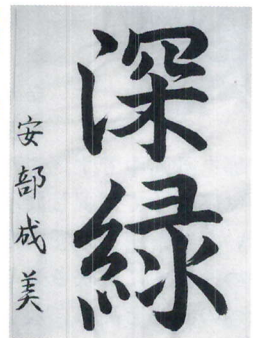 深緑
安部成美